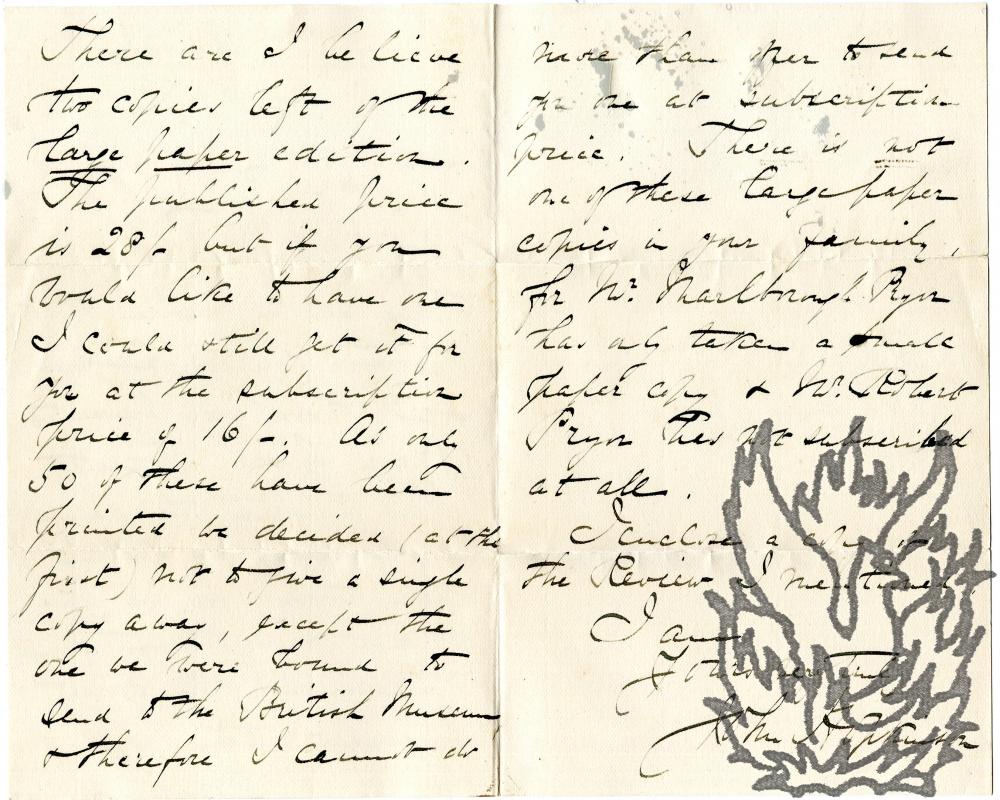 There are I believe
two copies left of the
large paper edition.
The published price
is 28/- but if you
would like to have one
I could still get it for
you at the subscription
price of 16/-. As only
50 of these have been
printed we decided (at the
first) not to give a single
copy away, except the
one we were bound to
send to the British Museum,
& therefore I cannot do
more than offer to send
you one at subscription
price. There is not
one of these large paper
copies in your family,
for Mr. Marlborough Pryor
has only taken a small
paper copy & Mr. Robert
Pryor has not subscribed
at all.
I enclose a copy of
the Review I mentioned.
I am
Yours very truly
John